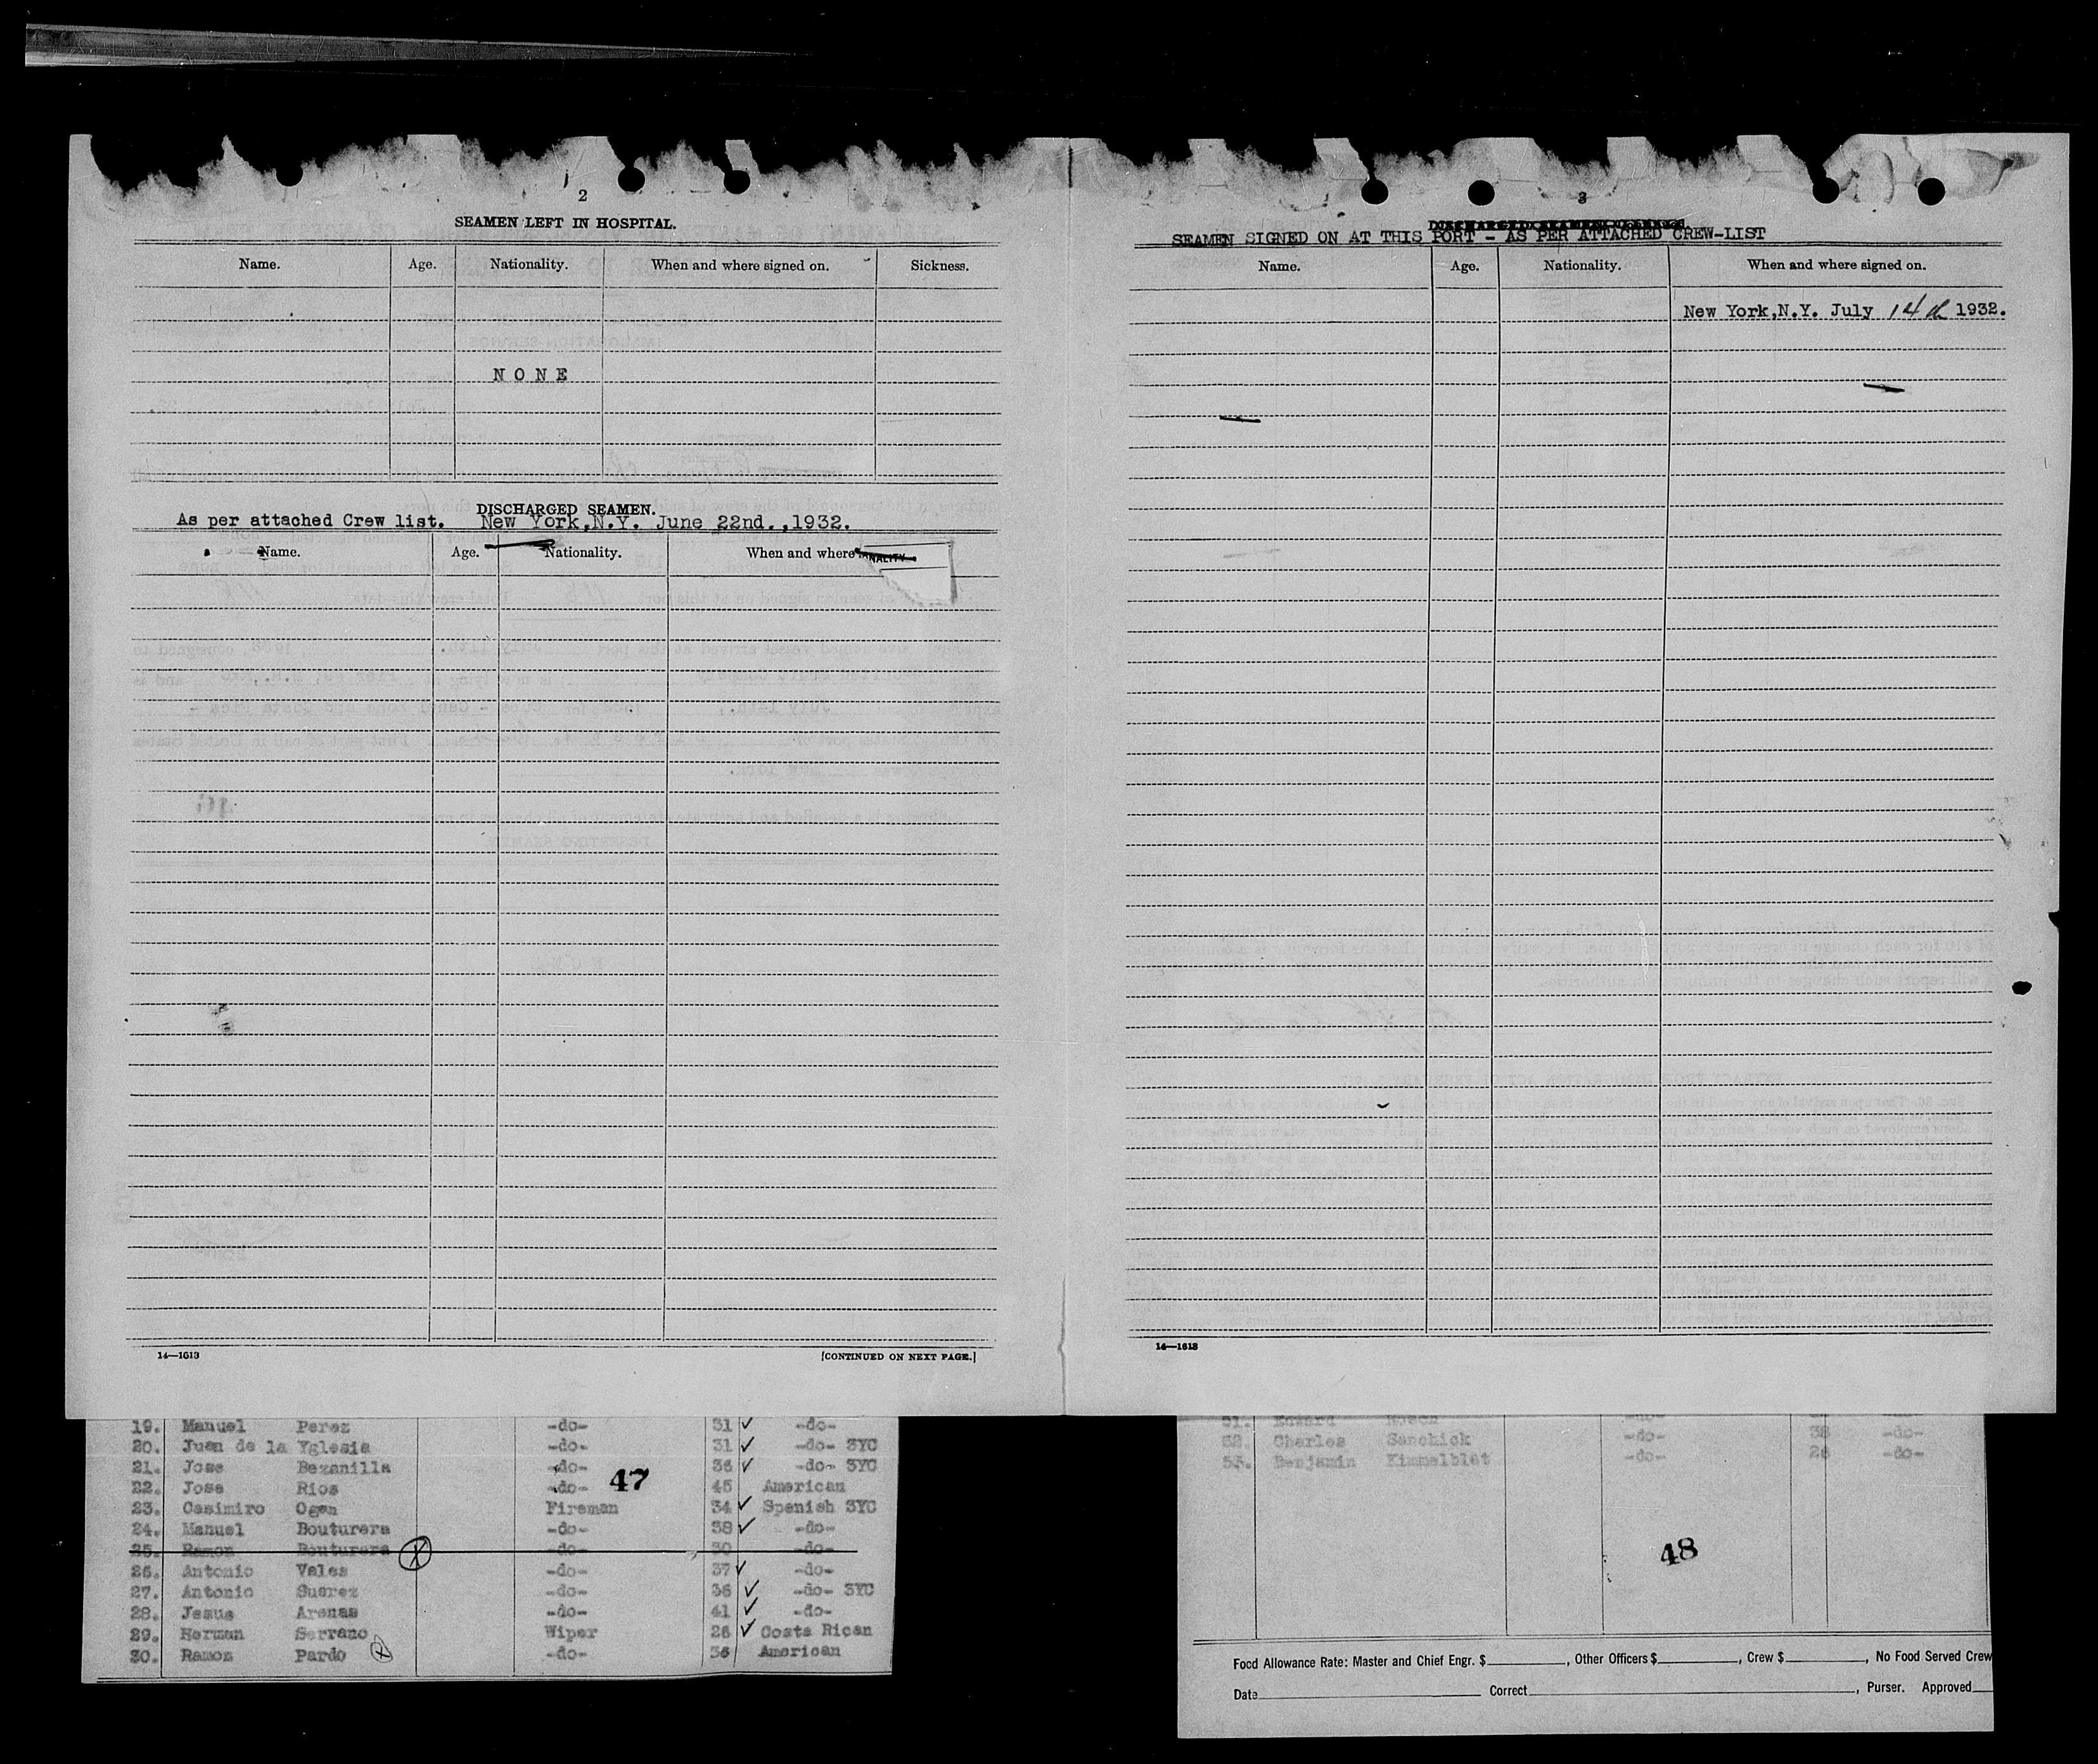 2
SEAMEN LEFT IN HOSPITAL.
Name. Age. Nationality. When and where signed on. Sickness.
NONE
DISCHARGED SEAMEN.
As per attached Crew list. New York,N.Y. June 22nd.,1932.
Name. Age. Nationality. When and where
NALITY
14—1613 [CONTINUED ON NEXT PAGE.]
19. Manuel Perez -do- 31 ✓ -do-
20. Juan de la Yglesia -do- 31 ✓ -do- 3YC
21. Jose Bezanilla -do- 36 ✓ -do- 3YC
47
22. Jose Rios -do- 45 American
23. Casimiro Ogen Fireman 34 ✓ Spanish 3YC
24. Manuel Bouturera -do- 38 ✓ -do-
25. Ramon Bouturera -do- 30 -do-
26. Antonio Vales -do- 37 ✓ -do-
27. Antonio Suerez -do- 36 ✓ -do- 3YC
28. Jesus Arenas -do- 41 ✓ -do-
29. Herman Serrano Wiper 26 ✓ Costa Rican
30. Ramon Pardo -do- 36 American
3
SEAMEN SIGNED ON AT THIS PORT - AS PER ATTACHED CREW-LIST
Name. Age. Nationality. When and where signed on.
New York,N.Y. July 14th 1932.
14—1613
51. Edward -do- -do-
52. Charles Sanchick -do- 38 -do-
53. Benjamin Kimmelblat -do- 26 -do-
48
Food Allowance Rate: Master and Chief Engr. $ , Other Officers $ , Crew $ , No Food Served Crew
Date Correct , Purser. Approved